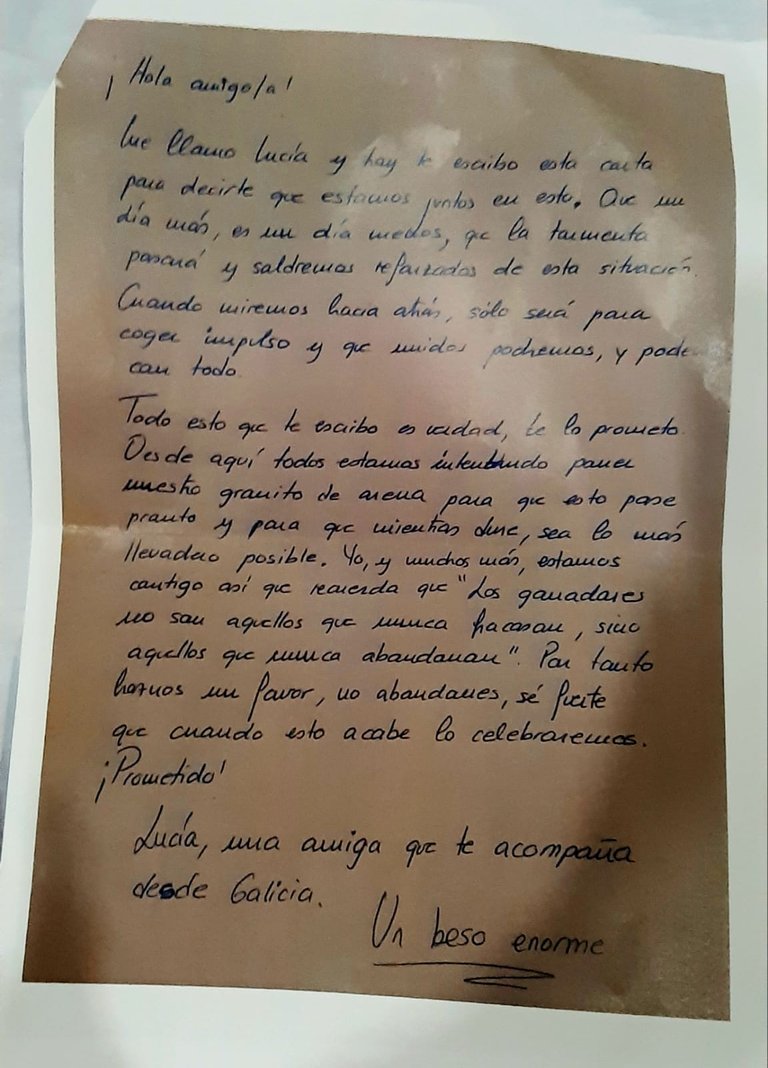 ¡Hola amigo/a!
Me llamo Lucía y hoy te escribo esta carta
para decirte que estamos juntos en esto. Que un
día más, es un día menos, que la tormenta
pasará y saldremos reforzados de esta situación.
Cuando miremos hacia atrás, sólo será para
coger impulso y que unidos podremos, y pode
con todo.
Todo esto que te escribo es verdad, te lo prometo.
Desde aquí todos estamos intentando poner
nuestro granito de arena para que esto pase
pronto y para que mientras dure, sea lo más
llevadero posible. Yo, y muchos más, estamos
contigo así que recuerda que "Los ganadores
no son aquellos que nunca fracasan, sino
aquellos que nunca abandonan". Por tanto
haznos un favor, no abandones, sé fuerte
que cuando esto acabe lo celebraremos.
¡Prometido!
Lucía, una amiga que te acompaña
desde Galicia.
Un beso enorme